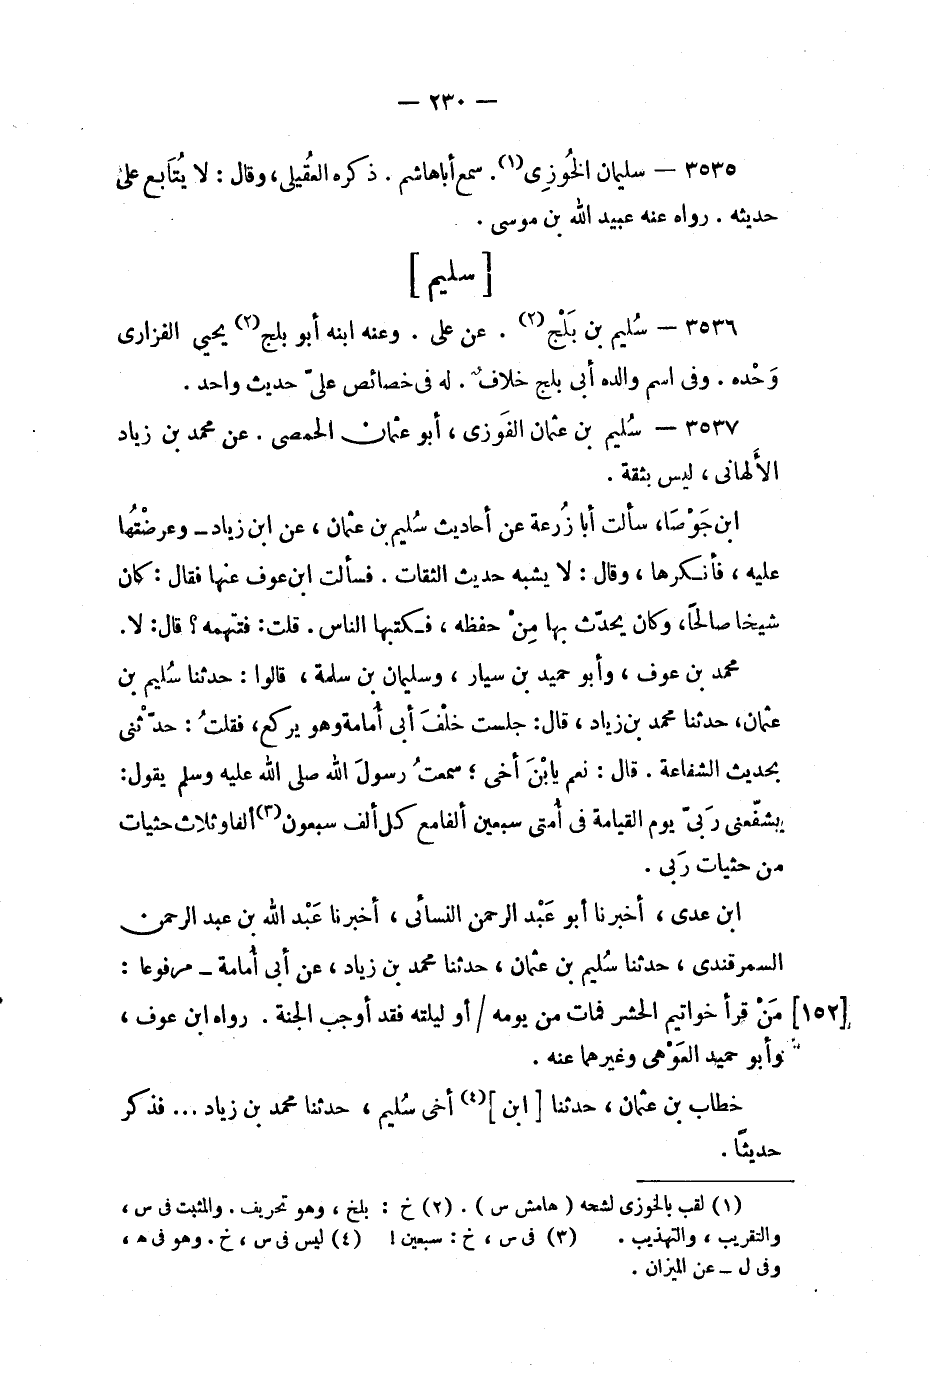 — ٢٣٠ —
٣٥٣٥ — سليمان الخُوزِى(١). سمع أبا هاشم . ذكره العقيلى، وقال : لا يُتَابع على
حديثه . رواه عنه عبيد الله بن موسى .
[ سليم ]
٣٥٣٦ — سُليم بن بَلْج(٢) . عن على . وعنه ابنه أبو بلج(٢) يحيي الفزارى
وَحْده . وفى اسم والده أبى بلج خلافٌ . له فى خصائص علىّ حديث واحد .
٣٥٣٧ — سُليم بن عثمان الفَوزى ، أبو عثمان الحمصى . عن محمد بن زياد
الأَلهانى ، ليس بثقة .
ابن جَوْصَا، سألت أبا زُرعة عن أحاديث سُليم بن عثمان ، عن ابن زياد ــ وعرضْتُها
عليه ، فأنكرها ، وقال : لا يشبه حديث الثقات . فسألت ابن عوف عنها فقال : كان
شيخا صالحًا، وكان يحدّث بها مِنْ حفظه ، فكتبها الناس . قلت: فتتهمه ؟ قال: لا.
محمد بن عوف ، وأبو حميد بن سيار ، وسليمان بن سلمة ، قالوا : حدثنا سُليم بن
عثمان، حدثنا محمد بن زياد ، قال: جلست خلْفَ أبى أُمامة وهو يركع، فقلتُ : حدّثنى
بحديث الشفاعة . قال : نعم يابْنَ أخى ؛ سمعتُ رسولَ الله صلى الله عليه وسلم يقول:
يشفّعنى ربّى يوم القيامة فى أُمتى سبعين ألفا مع كل ألف سبعون(٣) ألفا وثلاث حثيات
من حثيات رَبى .
ابن عدى ، أخبرنا أبو عَبْد الرحمن النسائى ، أخبرنا عَبْد الله بن عبد الرحمن
السمرقندى ، حدثنا سُليم بن عثمان ، حدثنا محمد بن زياد ، عن أبى أُمامة ــ مرفوعا :
[١٥٢] مَنْ قرأ خواتيم الحشر فمات من يومه / أو ليلته فقد أوجب الجنة . رواه ابن عوف ،
وأبو حميد العَوْهى وغيرهما عنه .
خطاب بن عثمان ، حدثنا [ ابن ](٤) أخى سُليم ، حدثنا محمد بن زياد ... فذكر
حديثًا .
(١) لقب بالخوزى لشحه ( هامش س ) . (٢) خ : بلخ ، وهو تحريف . والمثبت فى س ،
والتقريب ، والتهذيب . (٣) فى س ، خ : سبعين ! (٤) ليس فى س ، خ . وهو فى هـ ،
وفى ل ــ عن الميزان .